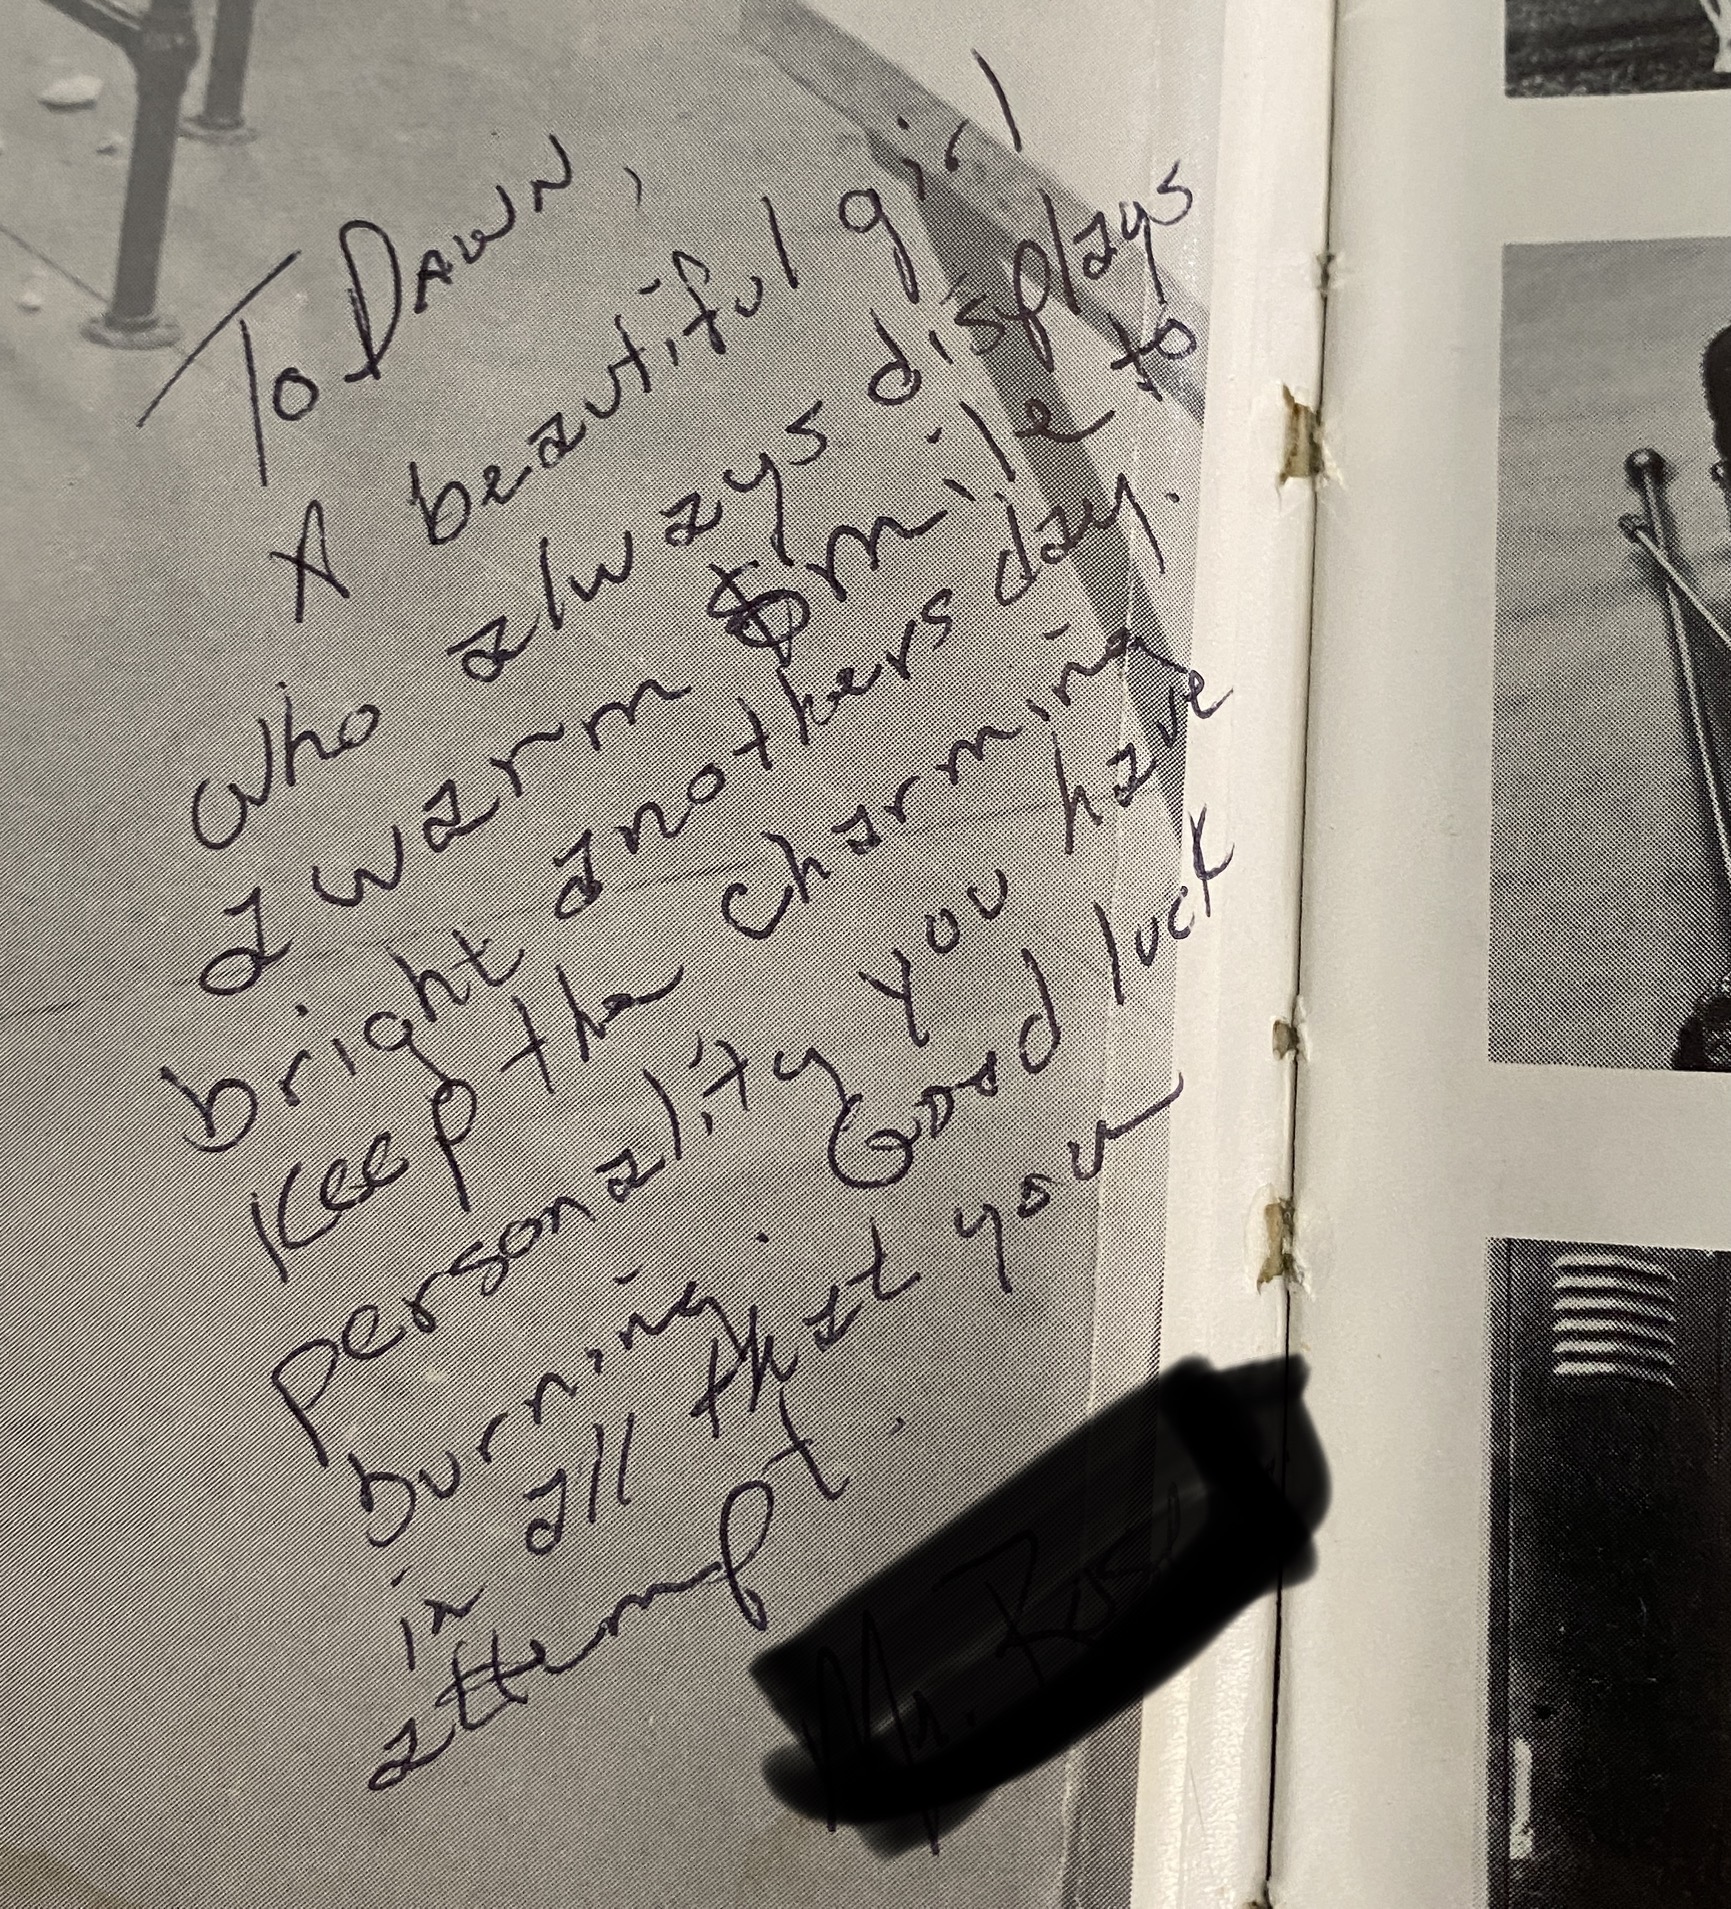 To DAWN,
A beautiful girl
who always displays
a warm smile to
bright anothers day.
Keep the charming
personality you have
burning. Good luck
in all that you
attempt.